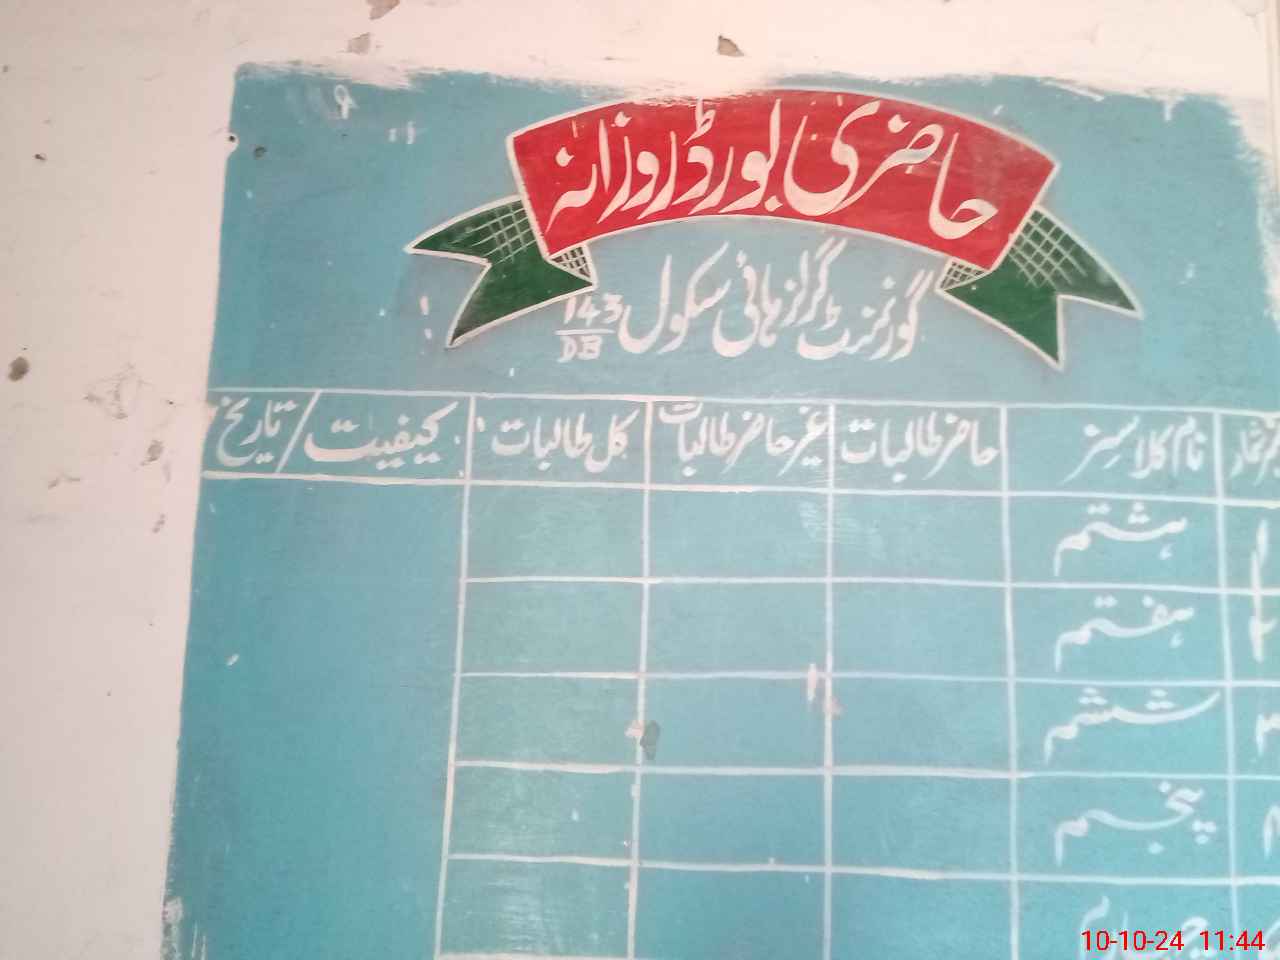 حاضری بورڈ روزانہ
گورنمنٹ گرلز ہائی سکول 143/DB
نمبر شمار نام کلاسز حاضر طالبات غیر حاضر طالبات کل طالبات کیفیت/تاریخ
۱ ہشتم
۲ ہفتم
۳ ششم
۴ پنجم
چہارم
10-10-24 11:44